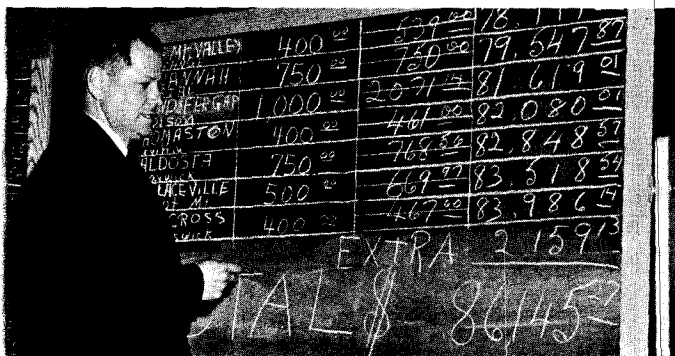 VALLEY 400 00 539 00
ANNAH 750 00 750 00 79,547 87
GAP 1,000 00 2071 14 81,619 01
OMASTON 400 00 461 00 82,080 01
ALDOSTA 750 00 768 56 82,848 57
LACEVILLE 500 00 669 97 83,518 54
CROSS 400 00 467 60 83,986 14
EXTRA 2159 13
OTAL $ 86145 27